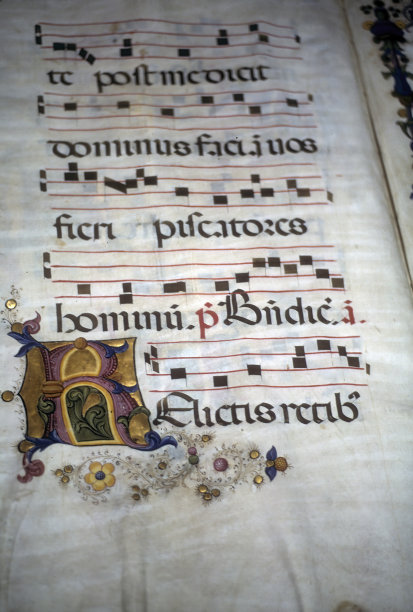 te post me dicit
dominus faciā vos
fieri piscatores
hominū. p̄s Bn̄dic̄. ā.
RElictis retibꝰ